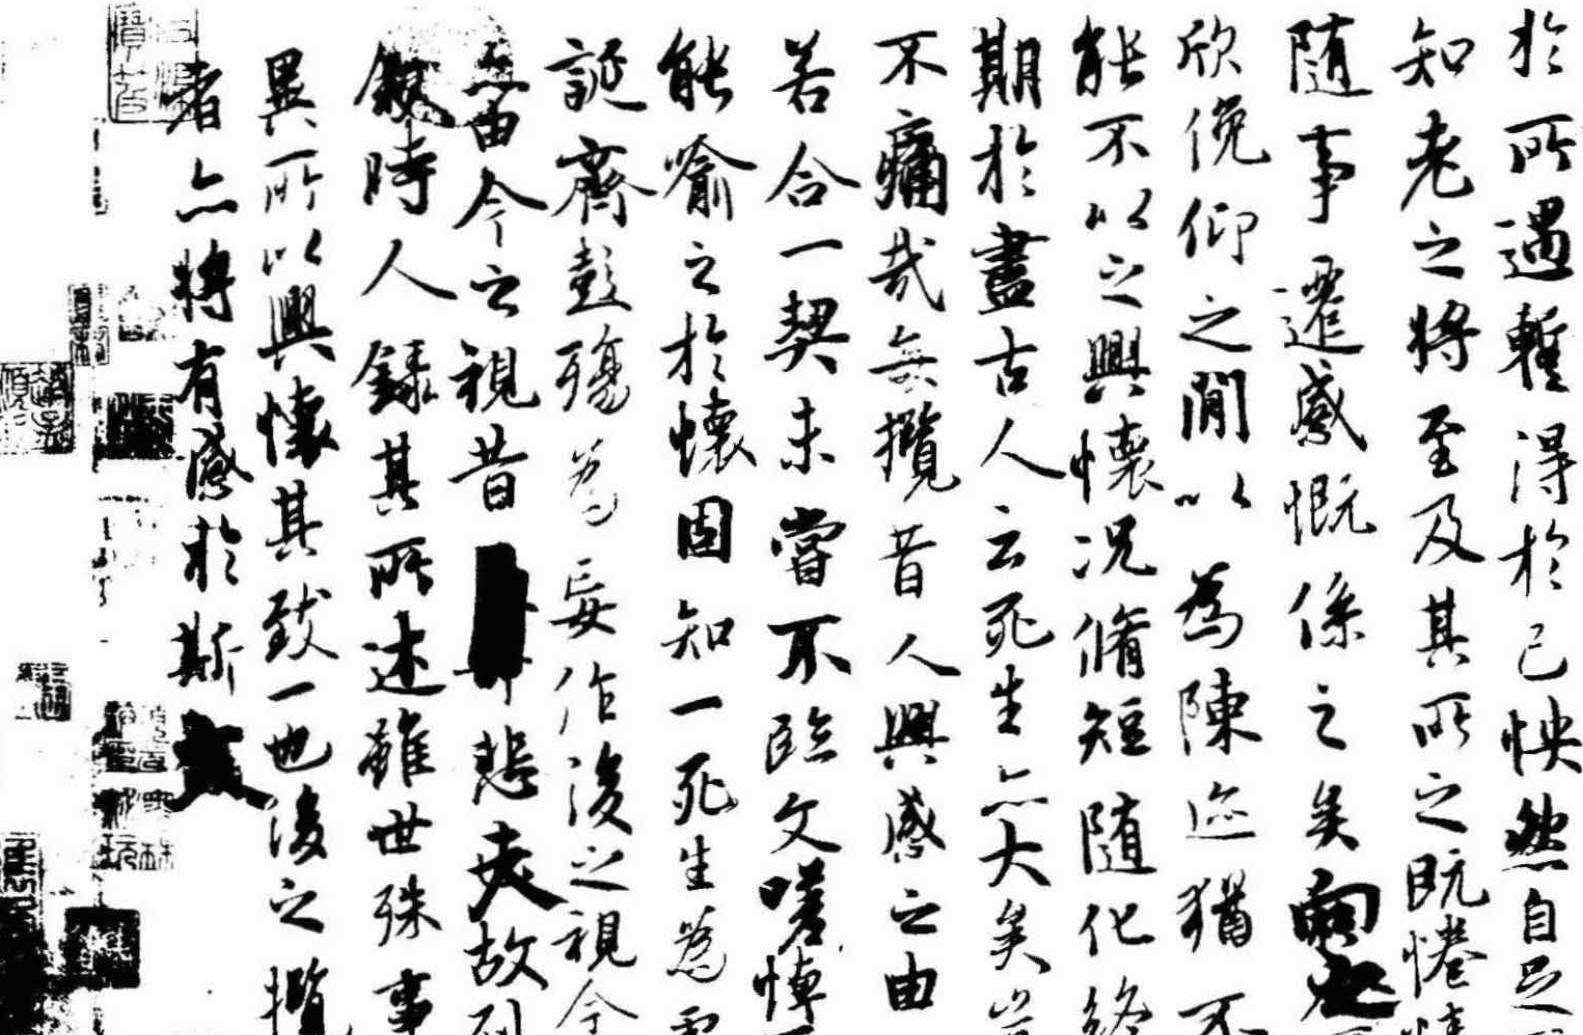 於所遇暫得於己怏然自足
知老之將至及其所之既惓情
隨事遷感慨係之矣向之
欣俛仰之閒以為陳迹猶不
能不以之興懷況脩短隨化終
期於盡古人云死生亦大矣豈
不痛哉每攬昔人興感之由
若合一契未嘗不臨文嗟悼不
能喻之於懷固知一死生為虛
誕齊彭殤為妄作後之視今
亦由今之視昔悲夫故列
敘時人錄其所述雖世殊事
異所以興懷其致一也後之攬
者亦將有感於斯文